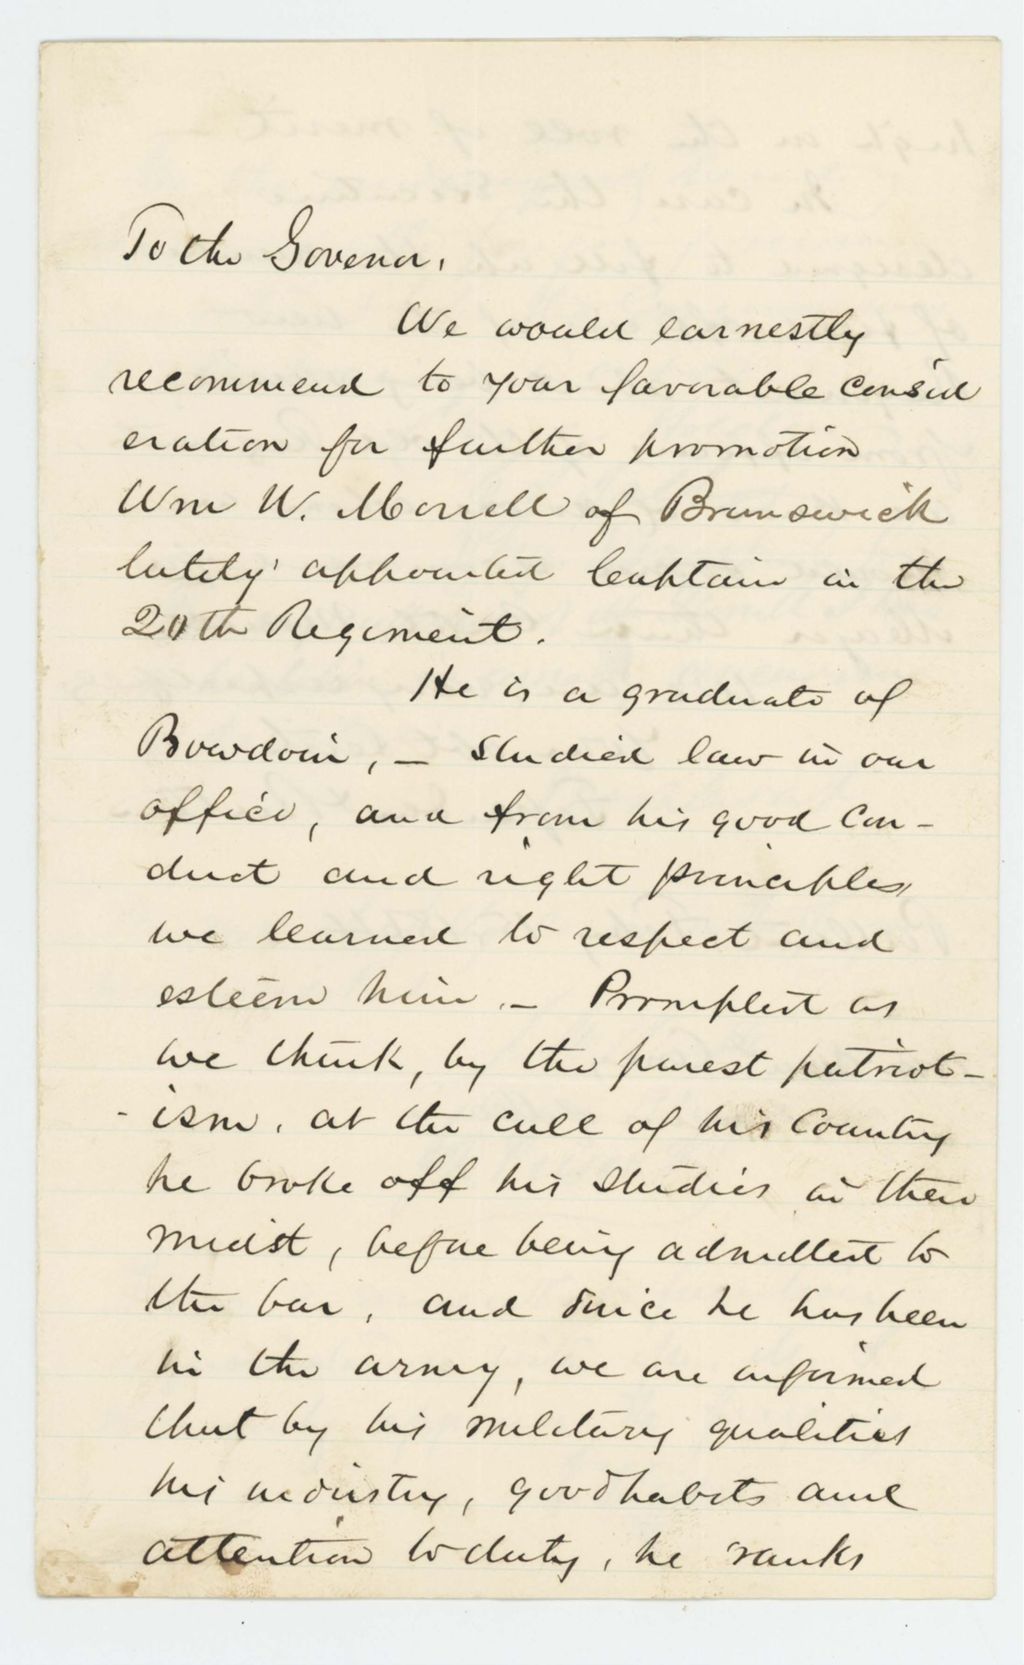 To the Govenor,
We would earnestly
recommend to your favorable consid
eration for further promotion
Wm W. Morrell of Brunswick
lately appointed Captain in the
20th Regiment.
He is a graduate of
Bowdoin, — studied law in our
office, and from his good con-
duct and right principles
we learned to respect and
esteem him. — Prompted as
we think, by the purest patriot-
-ism, at the call of his Country
he broke off his studies in their
midst, before being admitted to
the bar, and since he has been
in the army, we are informed
that by his military qualities
his industry, good habits and
attention to duty, he ranks